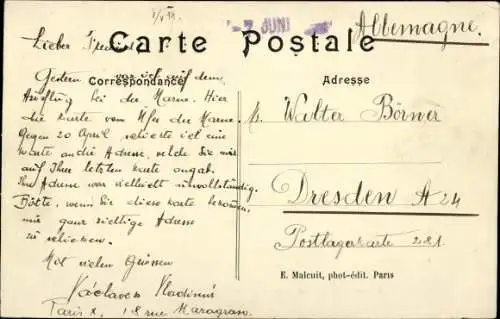 Carte Postale
7 JUNI
Allemagne.
Lieber
Correspondance
Adresse
Gestern war ich auf dem
Ausflug bei der Marne. Hier
die Karte vom Ufer der Marne.
Gegen 20 April schickte ich eine
Karte an die Adresse, welche Sie mir
auf Ihrer letzten Karte angab.
Ihre Adresse war vielleicht unvollständig.
Bitte, wenn Sie diese Karte bekommen,
mir ganz richtige Adresse
zu schicken.
Mit vielen Grüssen
Václavek
Paris X, 18 rue
Walter Börner
Dresden A 24
Postlagerkarte 281.
E. Malcuit, phot-édit. Paris